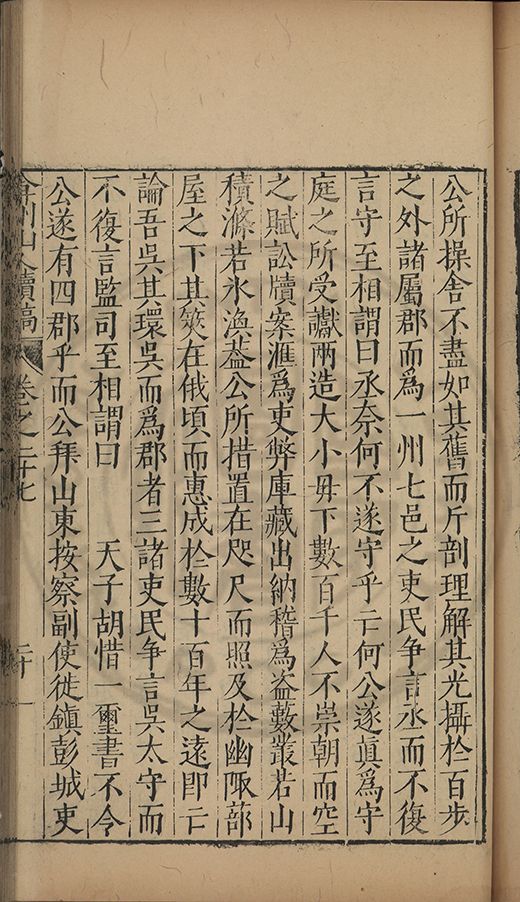 公所操舎不盡如其舊而斤剖理解其光攝於百步
之外諸屬郡而爲一州七邑之吏民争言丞而不復
言守至相謂曰丞奈何不遂守乎亡何公遂眞爲守
庭之所受讞兩造大小毋下數百千人不崇朝而空
之賦訟牘案滙爲吏弊庫藏出納稽爲盗藪叢若山
積滌若氷渙葢公所措置在咫尺而照及於幽陬蔀
屋之下其筴在俄頃而惠成於數十百年之遠卽亡
論吾吳其環吳而爲郡者三諸吏民争言吳太守而
不復言監司至相謂曰　　天子胡惜一璽書不令
公遂有四郡乎而公拜山東按察副使徙鎮彭城吏
弇州山人續稿 卷之二十七 二十一